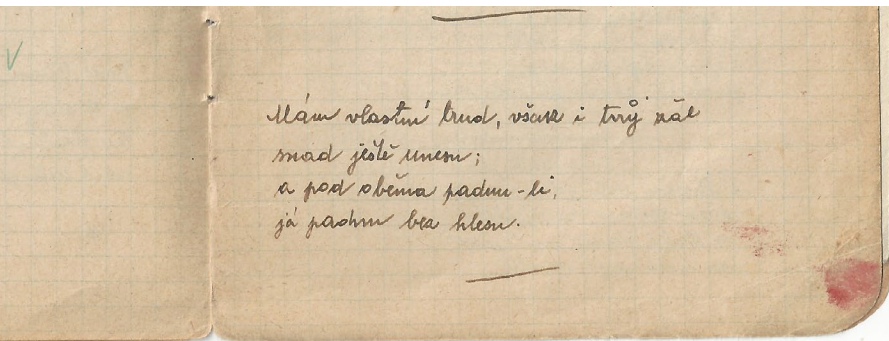 Mám vlastní trud, však i tvůj žal
snad ještě unesu;
a pod oběma padnu-li,
já padnu bez hlesu.